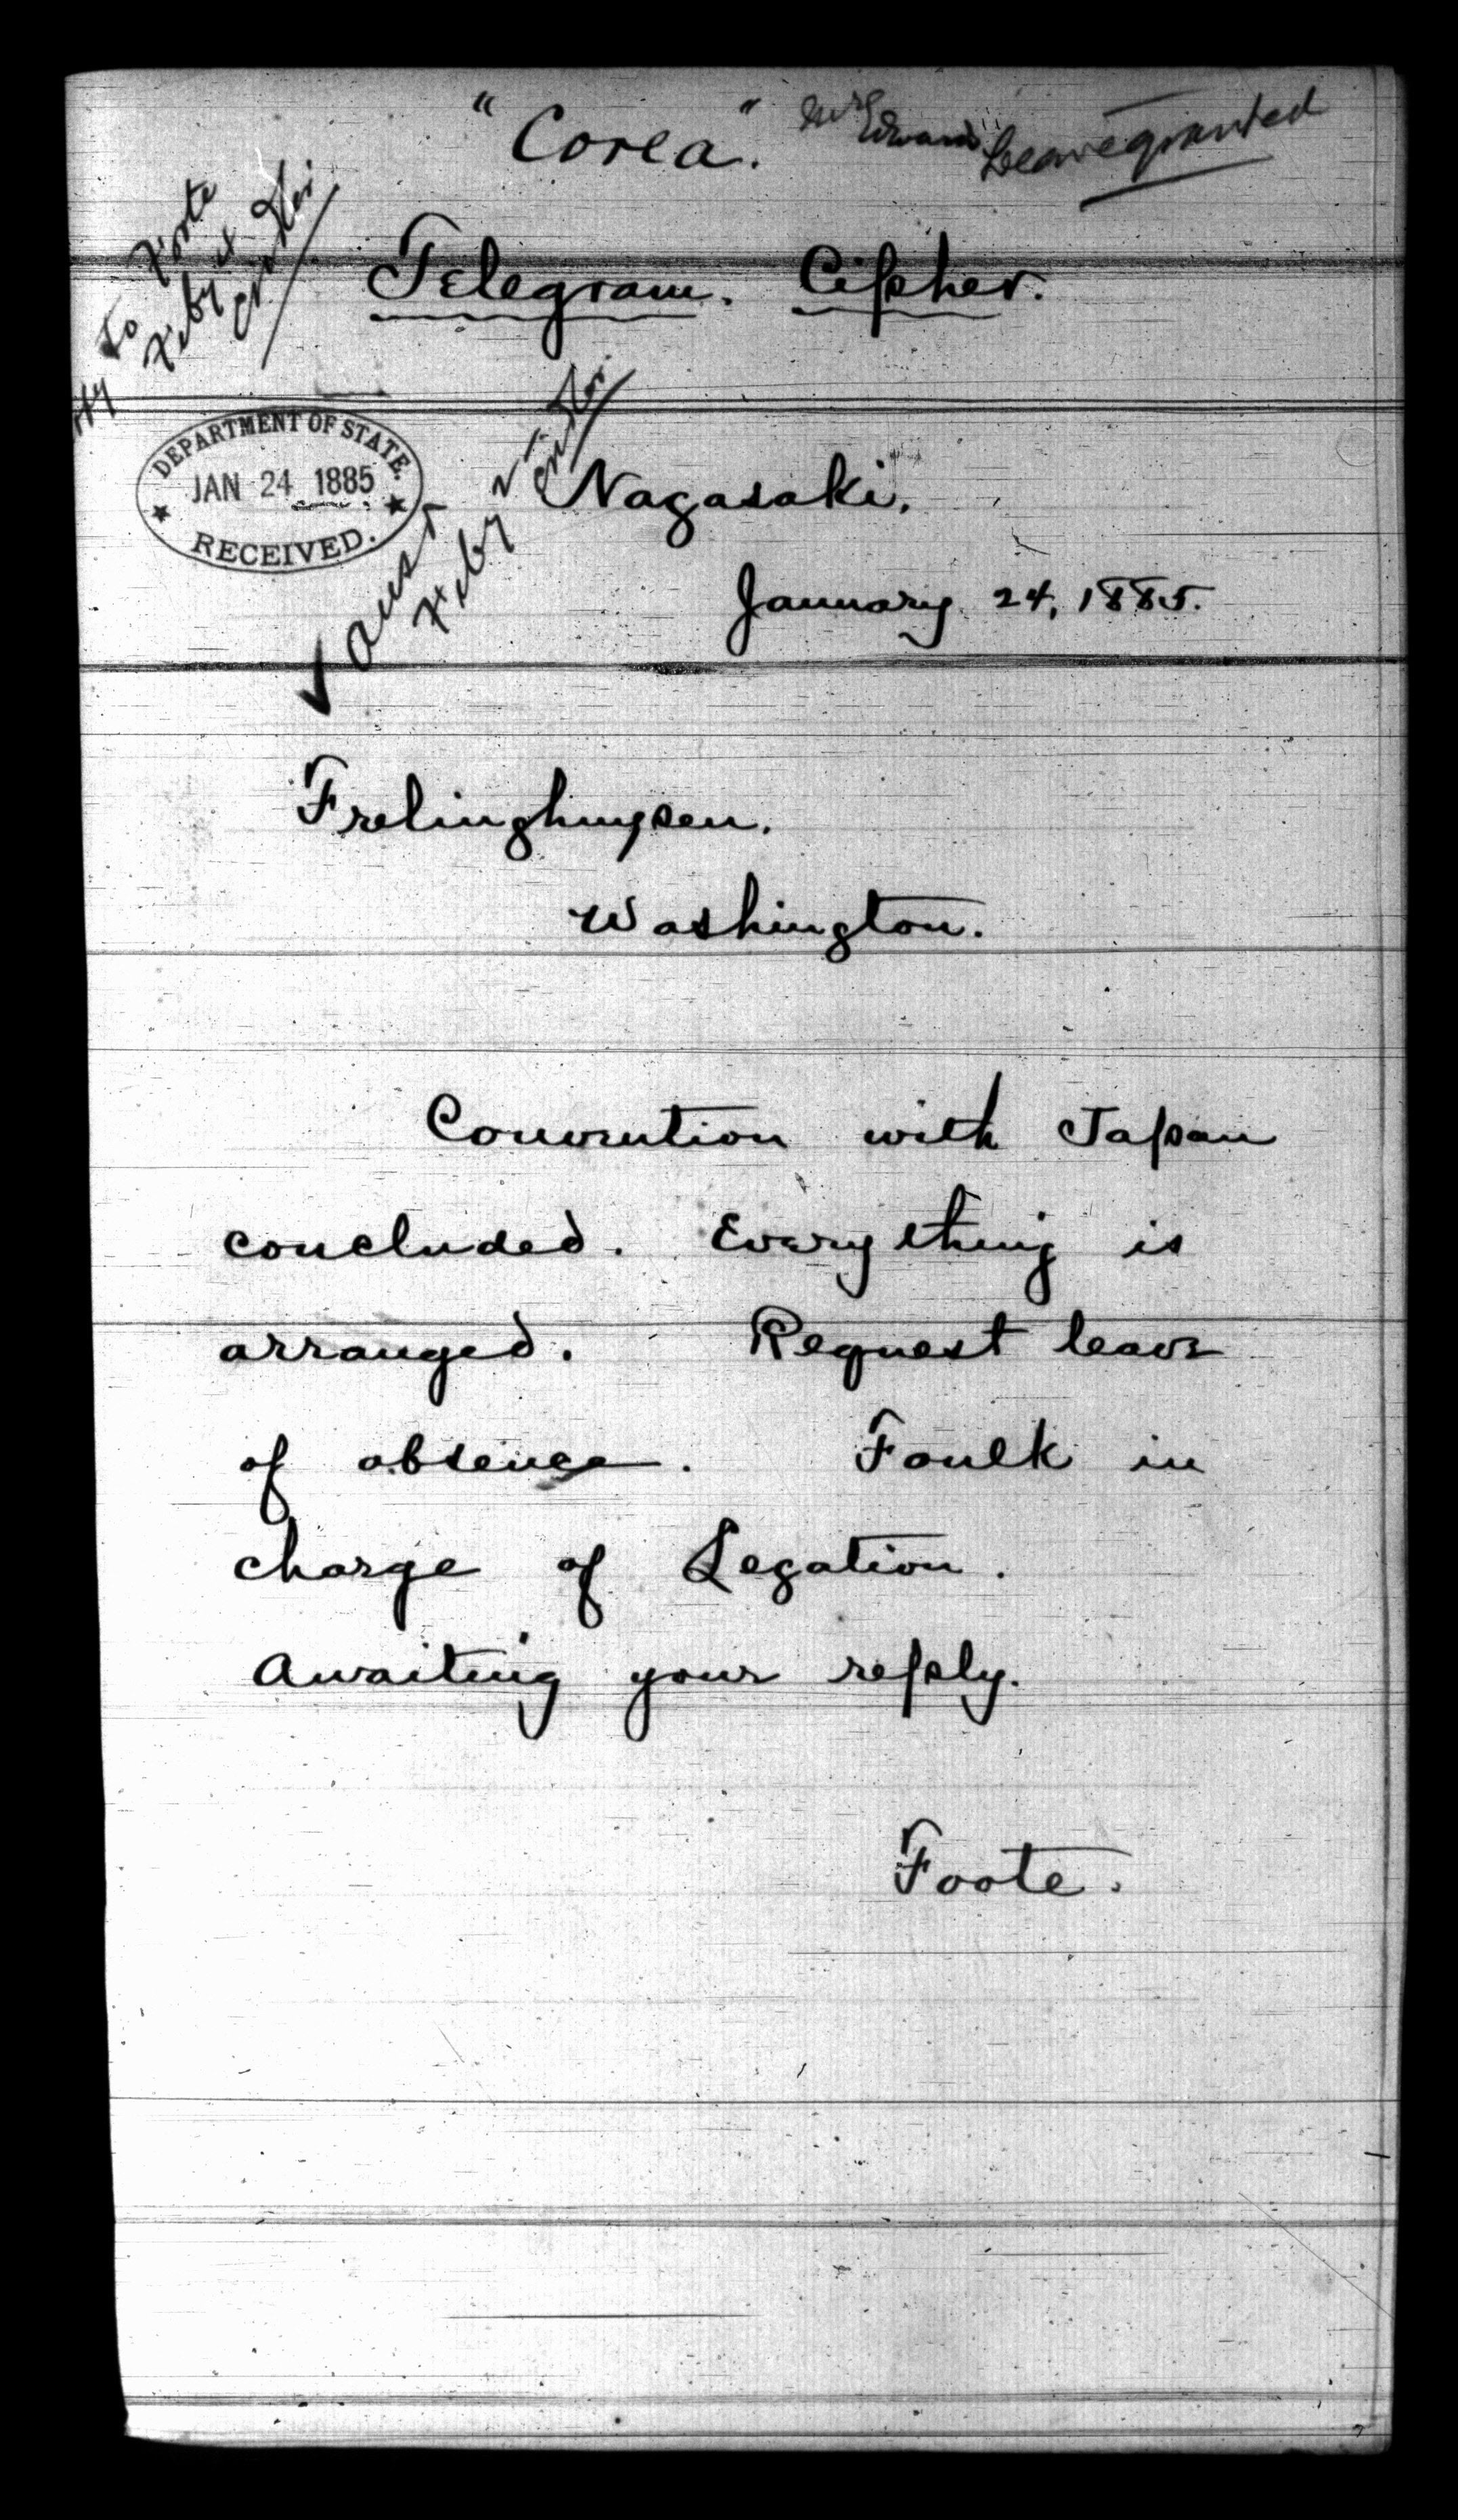 "Corea". Leave granted
To Foote
Feby
Telegram. Cipher.
DEPARTMENT OF STATE.
JAN 24 1885
RECEIVED.
Nagasaki,
January 24, 1885.
Feby
Frelinghuysen.
Washington.
Convention with Japan
concluded. Everything is
arranged. Request leave
of absence. Foulk in
charge of Legation.
Awaiting your reply.
Foote.